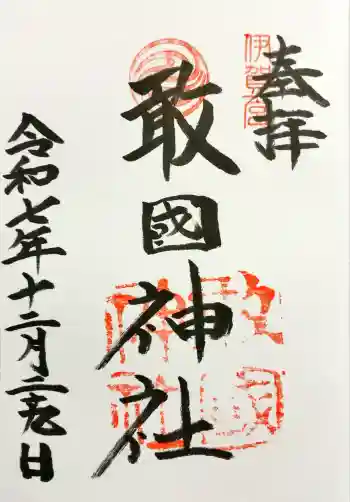 奉拝
伊賀一宮
敢國神社
敢國神社
令和七年十二月二十九日